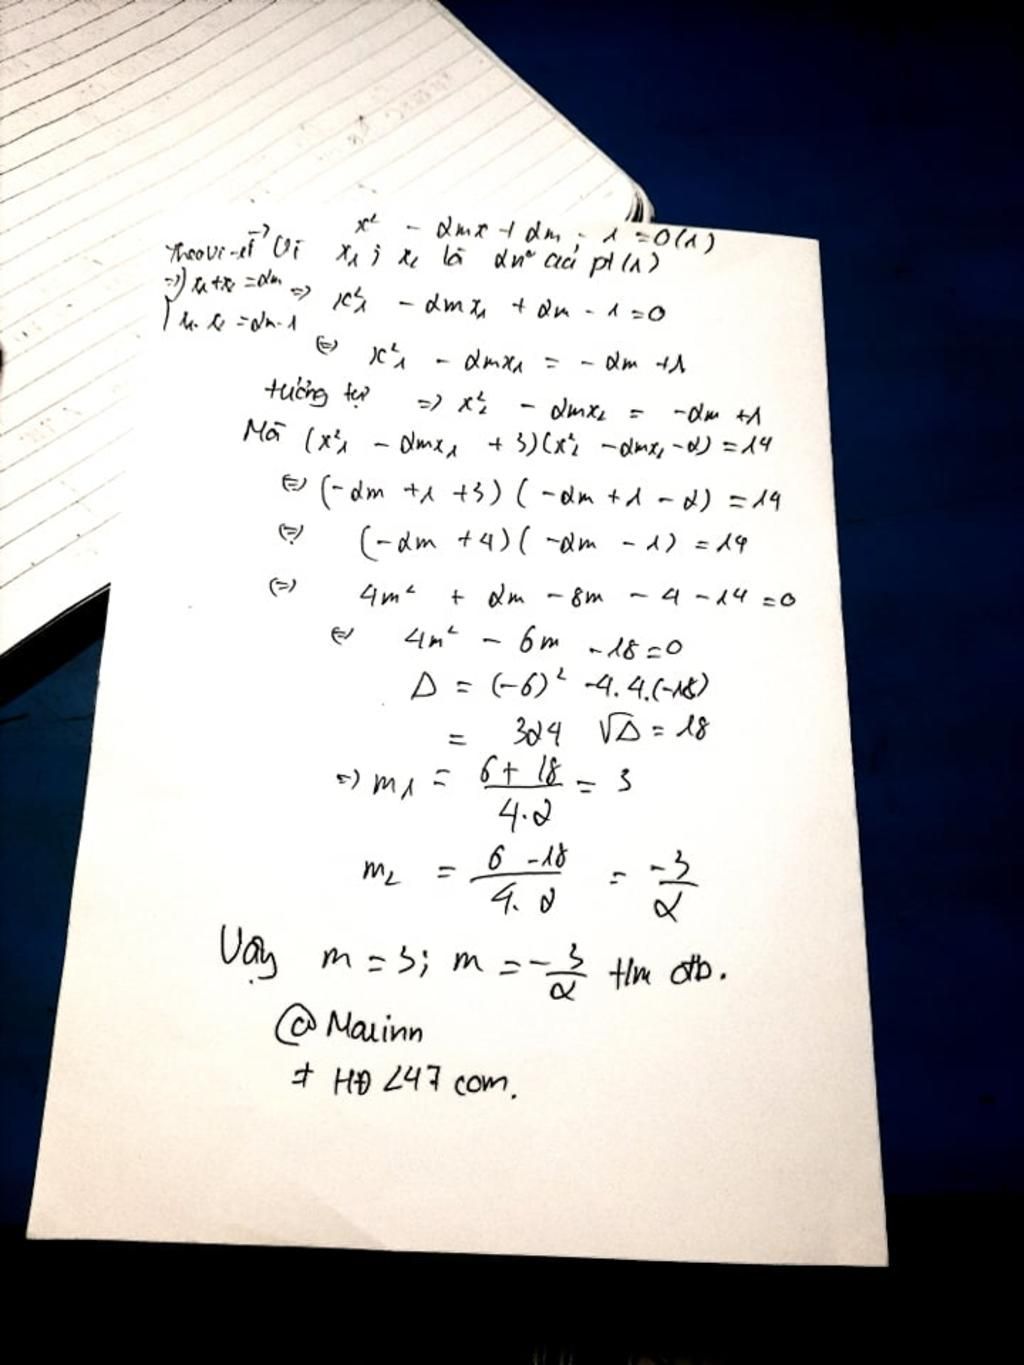 x² - 2mx + 2m - 1 = 0 (1)
Theo Vi-ét Vì x₁; x₂ là 2n⁰ của pt (1)
=> x₁ + x₂ = 2m => x²₁ - 2mx₁ + 2m - 1 = 0
x₁ . x₂ = 2m - 1
<=> x²₁ - 2mx₁ = - 2m + 1
tương tự => x²₂ - 2mx₂ = -2m + 1
Mà (x²₁ - 2mx₁ + 3)(x²₂ - 2mx₂ - 2) = 14
<=> (-2m + 1 + 3)(-2m + 1 - 2) = 14
<=> (-2m + 4)(-2m - 1) = 14
<=> 4m² + 2m - 8m - 4 - 14 = 0
<=> 4m² - 6m - 18 = 0
Δ = (-6)² - 4. 4.(-18)
= 324 √Δ = 18
=> m₁ = (6 + 18)/(4.2) = 3
m₂ = (6 - 18)/(4.2) = -3/2
Vậy m = 3; m = -3/2 t/m đb.
@Maiinn
≠ HĐ 247 com.